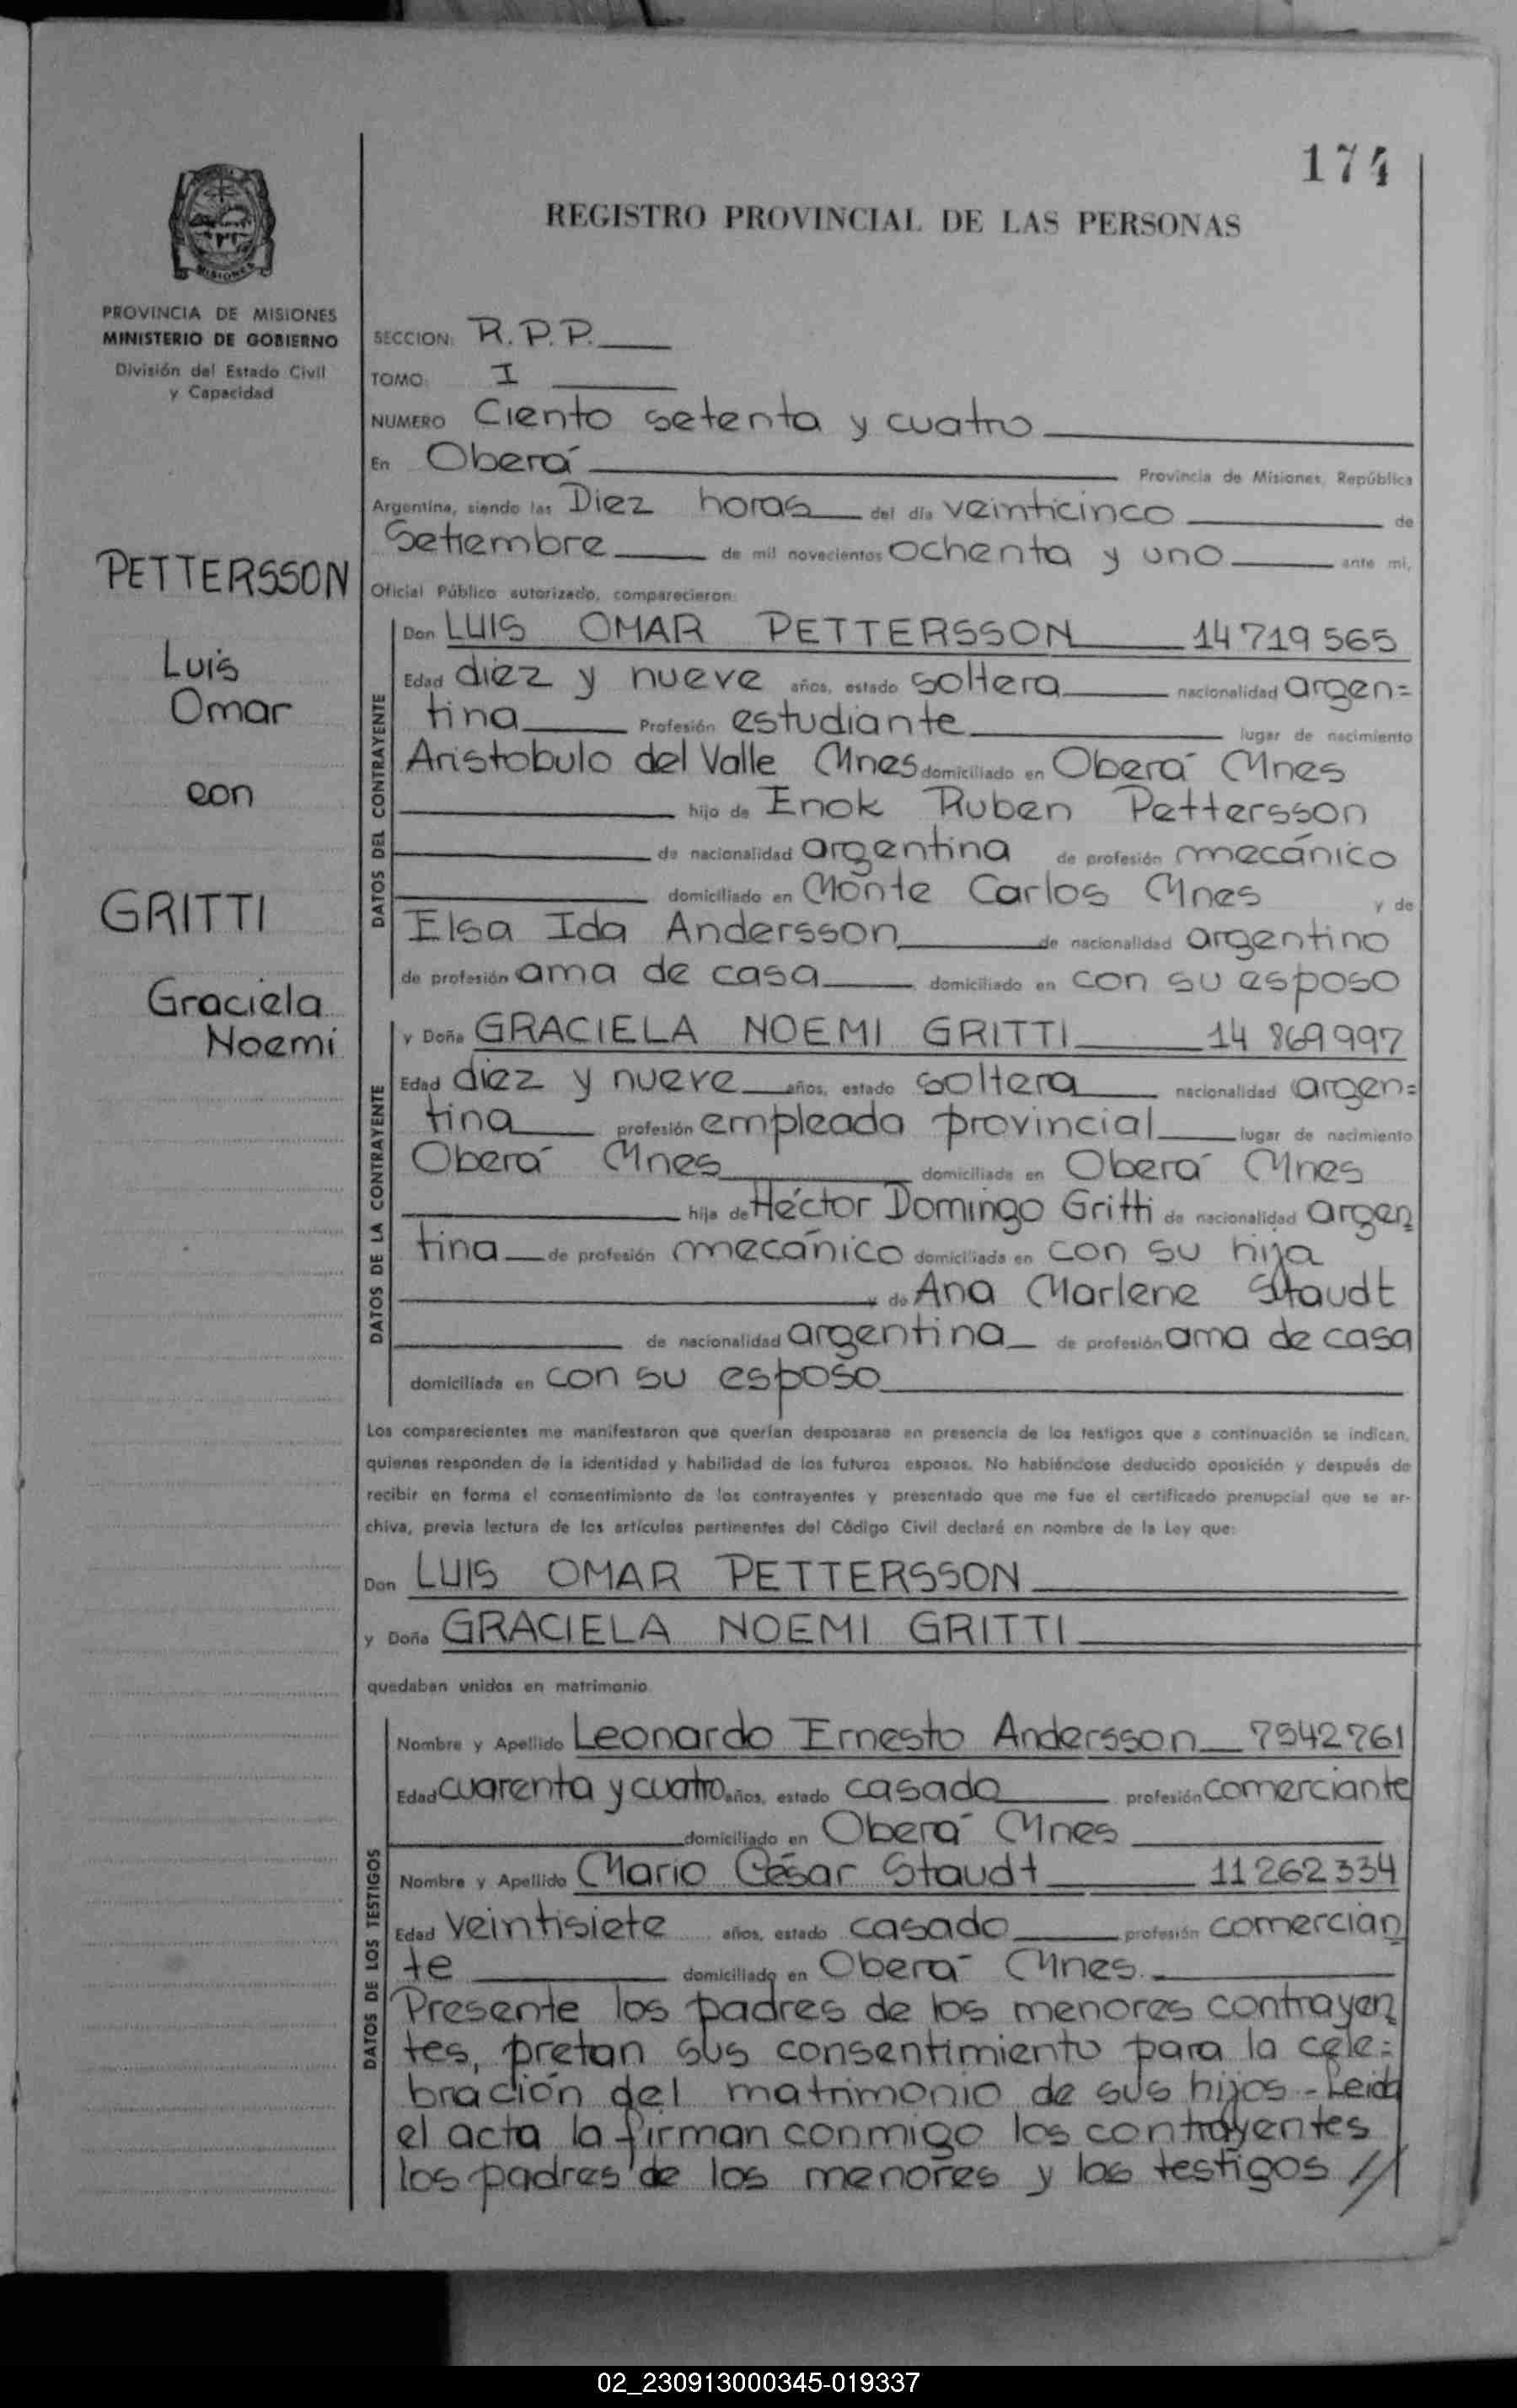 174
REGISTRO PROVINCIAL DE LAS PERSONAS
MISIONES
PROVINCIA DE MISIONES
MINISTERIO DE GOBIERNO
División del Estado Civil
y Capacidad
PETTERSSON
Luis
Omar
con
GRITTI
Graciela
Noemi
SECCION: R.P.P.
TOMO: I
NUMERO Ciento setenta y cuatro
En Oberá Provincia de Misiones, República
Argentina, siendo las Diez horas del día veinticinco de
Setiembre de mil novecientos ochenta y uno ante mi,
Oficial Público autorizado, comparecieron:
DATOS DEL CONTRAYENTE
Don LUIS OMAR PETTERSSON 14719565
Edad diez y nueve años, estado soltera nacionalidad argen=
tina Profesión estudiante lugar de nacimiento
Aristobulo del Valle Mnes domiciliado en Oberá Mnes
hijo de Enok Ruben Pettersson
de nacionalidad argentina de profesión mecánico
domiciliado en Monte Carlos Mnes y de
Elsa Ida Andersson de nacionalidad argentino
de profesión ama de casa domiciliado en con su esposo
DATOS DE LA CONTRAYENTE
y Doña GRACIELA NOEMI GRITTI 14 869 997
Edad diez y nueve años, estado soltera nacionalidad argen=
tina profesión empleada provincial lugar de nacimiento
Oberá Mnes domiciliada en Oberá Mnes
hija de Héctor Domingo Gritti de nacionalidad argen
tina de profesión mecánico domiciliada en con su hija
y de Ana Marlene Staudt
de nacionalidad argentina de profesión ama de casa
domiciliada en con su esposo
Los comparecientes me manifestaron que querían desposarse en presencia de los testigos que a continuación se indican,
quienes responden de la identidad y habilidad de los futuros esposos. No habiéndose deducido oposición y después de
recibir en forma el consentimiento de los contrayentes y presentado que me fue el certificado prenupcial que se ar-
chiva, previa lectura de los artículos pertinentes del Código Civil declaré en nombre de la Ley que:
Don LUIS OMAR PETTERSSON
y Doña GRACIELA NOEMI GRITTI
quedaban unidos en matrimonio.
DATOS DE LOS TESTIGOS
Nombre y Apellido Leonardo Ernesto Andersson 7542761
Edad cuarenta y cuatro años, estado casado profesión comerciante
domiciliado en Oberá Mnes
Nombre y Apellido Mario César Staudt 11262334
Edad veintisiete años, estado casado profesión comercian
te domiciliado en Oberá Mnes.
Presente los padres de los menores contrayen
tes, pretan sus consentimiento para la cele=
bración del matrimonio de sus hijos - Leida
el acta la firman conmigo los contrayentes
los padres de los menores y los testigos //
02_230913000345-019337